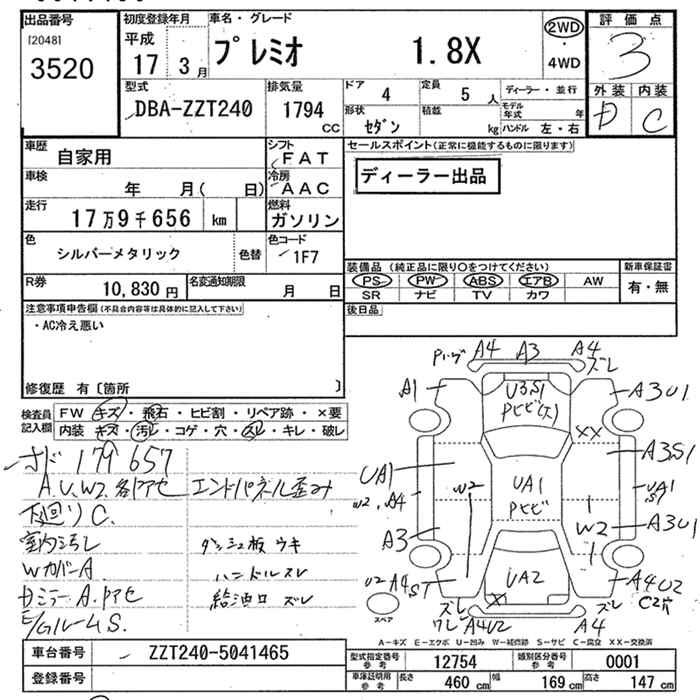 出品番号 初度登録年月 車名・グレード 評価点
[2048] 平成 プレミオ 1.8X 2WD 3
3520 17 3月 ・4WD
型式 排気量 ドア 4 定員 5 人 ディーラー・並行 外装 内装
DBA-ZZT240 1794 CC 形状 セダン 積載 kg モデル年式 年 D C
ハンドル 左・右
車歴 自家用 シフト FAT セールスポイント(正常に機能するものに限ります)
車検 年 月( 日) 冷房 AAC ディーラー出品
走行 17万9千656 km 燃料 ガソリン
色 シルバーメタリック 色替 色コード 1F7
装備品(純正品に限り〇をつけてください) 新車保証書
PS PW ABS エアB AW 有・無
SR ナビ TV カワ
R券 10,830円 名変通知期限 月 日
後日品
注意事項申告欄(不具合内容等は具体的に記入して下さい)
・AC冷え悪い
修復歴 有〔箇所 〕
検査員記入欄 FW キズ・飛石・ヒビ割・リペア跡・×要
内装 キズ・汚レ・コゲ・穴・スレ・キレ・破レ
179657
A.U.W2.各アセ エンドパネル歪み
下回りC.
室内汚レ ダッシュ板 ウキ
WカバーA ハンドルスレ
A.アセ 給油口 ズレ
E/GルームS.
A4 A3 A4
ズレ
A1 U3S1 A3U1
XX
UA1 A3S1
W2 UA1 UA1
W2.A4 S1
W2 A3U1
A3
U2 A4S1 UA2 A4U2
X C2穴
ズレ ズレ
ワレ A4U2 A4
スペア
A-キズ E-エクボ U-凹み W-補修跡 S-サビ C-腐食 XX-交換済
車台番号 ZZT240-5041465
登録番号
型式指定番号 参考 12754 類別区分番号 参考 0001
車庫証明用 参考 長さ 460 cm 幅 169 cm 高さ 147 cm